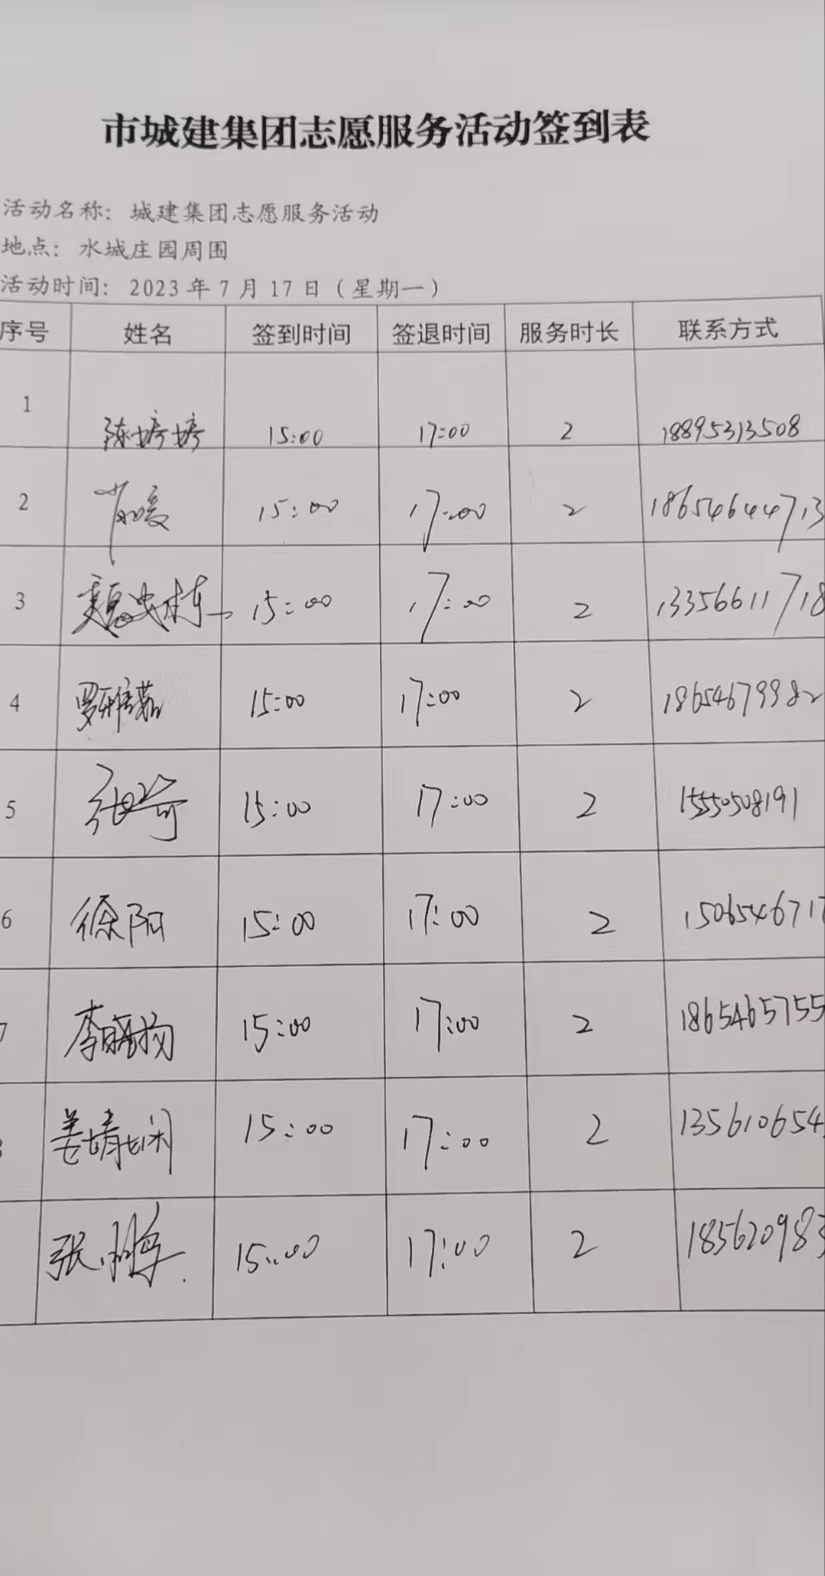 市城建集团志愿服务活动签到表
活动名称：城建集团志愿服务活动
地点：水城庄园周围
活动时间：2023年7月17日（星期一）
序号 姓名 签到时间 签退时间 服务时长 联系方式
1 陈婷婷 15:00 17:00 2 18895313508
2 15:00 17:00 2 18654644713
3 15:00 17:00 2 13356611718
4 罗雅茹 15:00 17:00 2 18654679982
5 张琦 15:00 17:00 2 15550508191
6 徐阳 15:00 17:00 2 1506546717
7 李晓扬 15:00 17:00 2 1865465755
姜婧娴 15:00 17:00 2 135610654
张 15:00 17:00 2 18562098